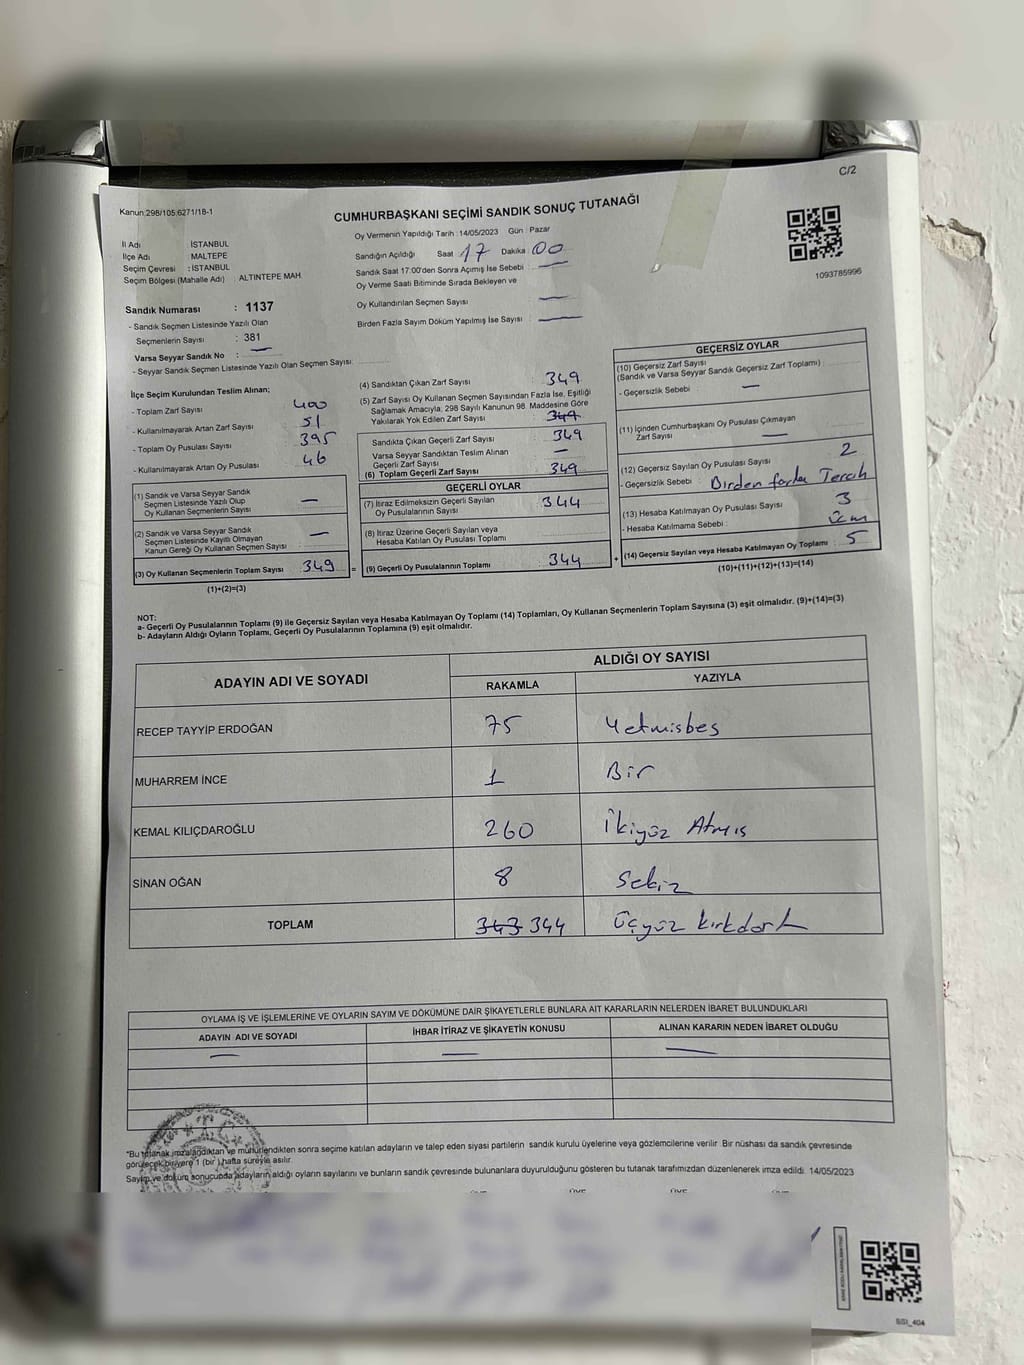 C/2
Kanun:298/105;6271/18-1
CUMHURBAŞKANI SEÇİMİ SANDIK SONUÇ TUTANAĞI
İl Adı İSTANBUL
İlçe Adı MALTEPE
Seçim Çevresi : İSTANBUL
Seçim Bölgesi (Mahalle Adı) : ALTINTEPE MAH.
Oy Vermenin Yapıldığı Tarih :14/05/2023 Gün : Pazar
Sandığın Açıldığı Saat 17 Dakika : 00
Sandık Saat 17.00'den Sonra Açımış İse Sebebi : —
Oy Verme Saati Bitiminde Sırada Bekleyen ve
Oy Kullandırılan Seçmen Sayısı —
Birden Fazla Sayım Döküm Yapılmış İse Sayısı : —
1093785996
Sandık Numarası : 1137
- Sandık Seçmen Listesinde Yazılı Olan
Seçmenlerin Sayısı : 381
Varsa Seyyar Sandık No : —
- Seyyar Sandık Seçmen Listesinde Yazılı Olan Seçmen Sayısı:
İlçe Seçim Kurulundan Teslim Alınan;
- Toplam Zarf Sayısı 400
- Kullanılmayarak Artan Zarf Sayısı 51
- Toplam Oy Pusulası Sayısı 395
- Kullanılmayarak Artan Oy Pusulası 46
(1) Sandık ve Varsa Seyyar Sandık
Seçmen Listesinde Yazılı Olup
Oy Kullanan Seçmenlerin Sayısı —
(2) Sandık ve Varsa Seyyar Sandık
Seçmen Listesinde Kayıtlı Olmayan
Kanun Gereği Oy Kullanan Seçmen Sayısı —
(3) Oy Kullanan Seçmenlerin Toplam Sayısı 349
(1)+(2)=(3)
(4) Sandıktan Çıkan Zarf Sayısı 349
(5) Zarf Sayısı Oy Kullanan Seçmen Sayısından Fazla İse, Eşitliği
Sağlamak Amacıyla; 298 Sayılı Kanunun 98. Maddesine Göre
Yakılarak Yok Edilen Zarf Sayısı 349
Sandıkta Çıkan Geçerli Zarf Sayısı 349
Varsa Seyyar Sandıktan Teslim Alınan
Geçerli Zarf Sayısı —
(6) Toplam Geçerli Zarf Sayısı 349
GEÇERLİ OYLAR
(7) İtiraz Edilmeksizin Geçerli Sayılan
Oy Pusulalarının Sayısı : 344
(8) İtiraz Üzerine Geçerli Sayılan veya
Hesaba Katılan Oy Pusulası Toplamı
= (9) Geçerli Oy Pusulalarının Toplamı 344 +
GEÇERSİZ OYLAR
(10) Geçersiz Zarf Sayısı
(Sandık ve Varsa Seyyar Sandık Geçersiz Zarf Toplamı)
- Geçersizlik Sebebi : —
(11) İçinden Cumhurbaşkanı Oy Pusulası Çıkmayan
Zarf Sayısı —
(12) Geçersiz Sayılan Oy Pusulası Sayısı 2
- Geçersizlik Sebebi : Birden fazla Tercih
(13) Hesaba Katılmayan Oy Pusulası Sayısı 3
- Hesaba Katılmama Sebebi :
(14) Geçersiz Sayılan veya Hesaba Katılmayan Oy Toplamı 5
(10)+(11)+(12)+(13)=(14)
NOT:
a- Geçerli Oy Pusulalarının Toplamı (9) ile Geçersiz Sayılan veya Hesaba Katılmayan Oy Toplamı (14) Toplamları, Oy Kullanan Seçmenlerin Toplam Sayısına (3) eşit olmalıdır. (9)+(14)=(3)
b- Adayların Aldığı Oyların Toplamı, Geçerli Oy Pusulalarının Toplamına (9) eşit olmalıdır.
ADAYIN ADI VE SOYADI
ALDIĞI OY SAYISI
RAKAMLA YAZIYLA
RECEP TAYYİP ERDOĞAN 75 Yetmisbes
MUHARREM İNCE 1 Bir
KEMAL KILIÇDAROĞLU 260 İkiyüz Atmıs
SİNAN OĞAN 8 Sekiz
TOPLAM 343 344 Üçyüz kırkdört
OYLAMA İŞ VE İŞLEMLERİNE VE OYLARIN SAYIM VE DÖKÜMÜNE DAİR ŞİKAYETLERLE BUNLARA AİT KARARLARIN NELERDEN İBARET BULUNDUKLARI
ADAYIN ADI VE SOYADI İHBAR İTİRAZ VE ŞİKAYETİN KONUSU ALINAN KARARIN NEDEN İBARET OLDUĞU
— — —
*Bu tutanak imzalandıktan ve mühürlendikten sonra seçime katılan adayların ve talep eden siyasi partilerin sandık kurulu üyelerine veya gözlemcilerine verilir. Bir nüshası da sandık çevresinde
görülecek bir yere 1 (bir) hafta süreyle asılır.
Sayım ve döküm sonucunda adayların aldığı oyların sayılarını ve bunların sandık çevresinde bulunanlara duyurulduğunu gösteren bu tutanak tarafımızdan düzenlenerek imza edildi. 14/05/2023
SSI_404